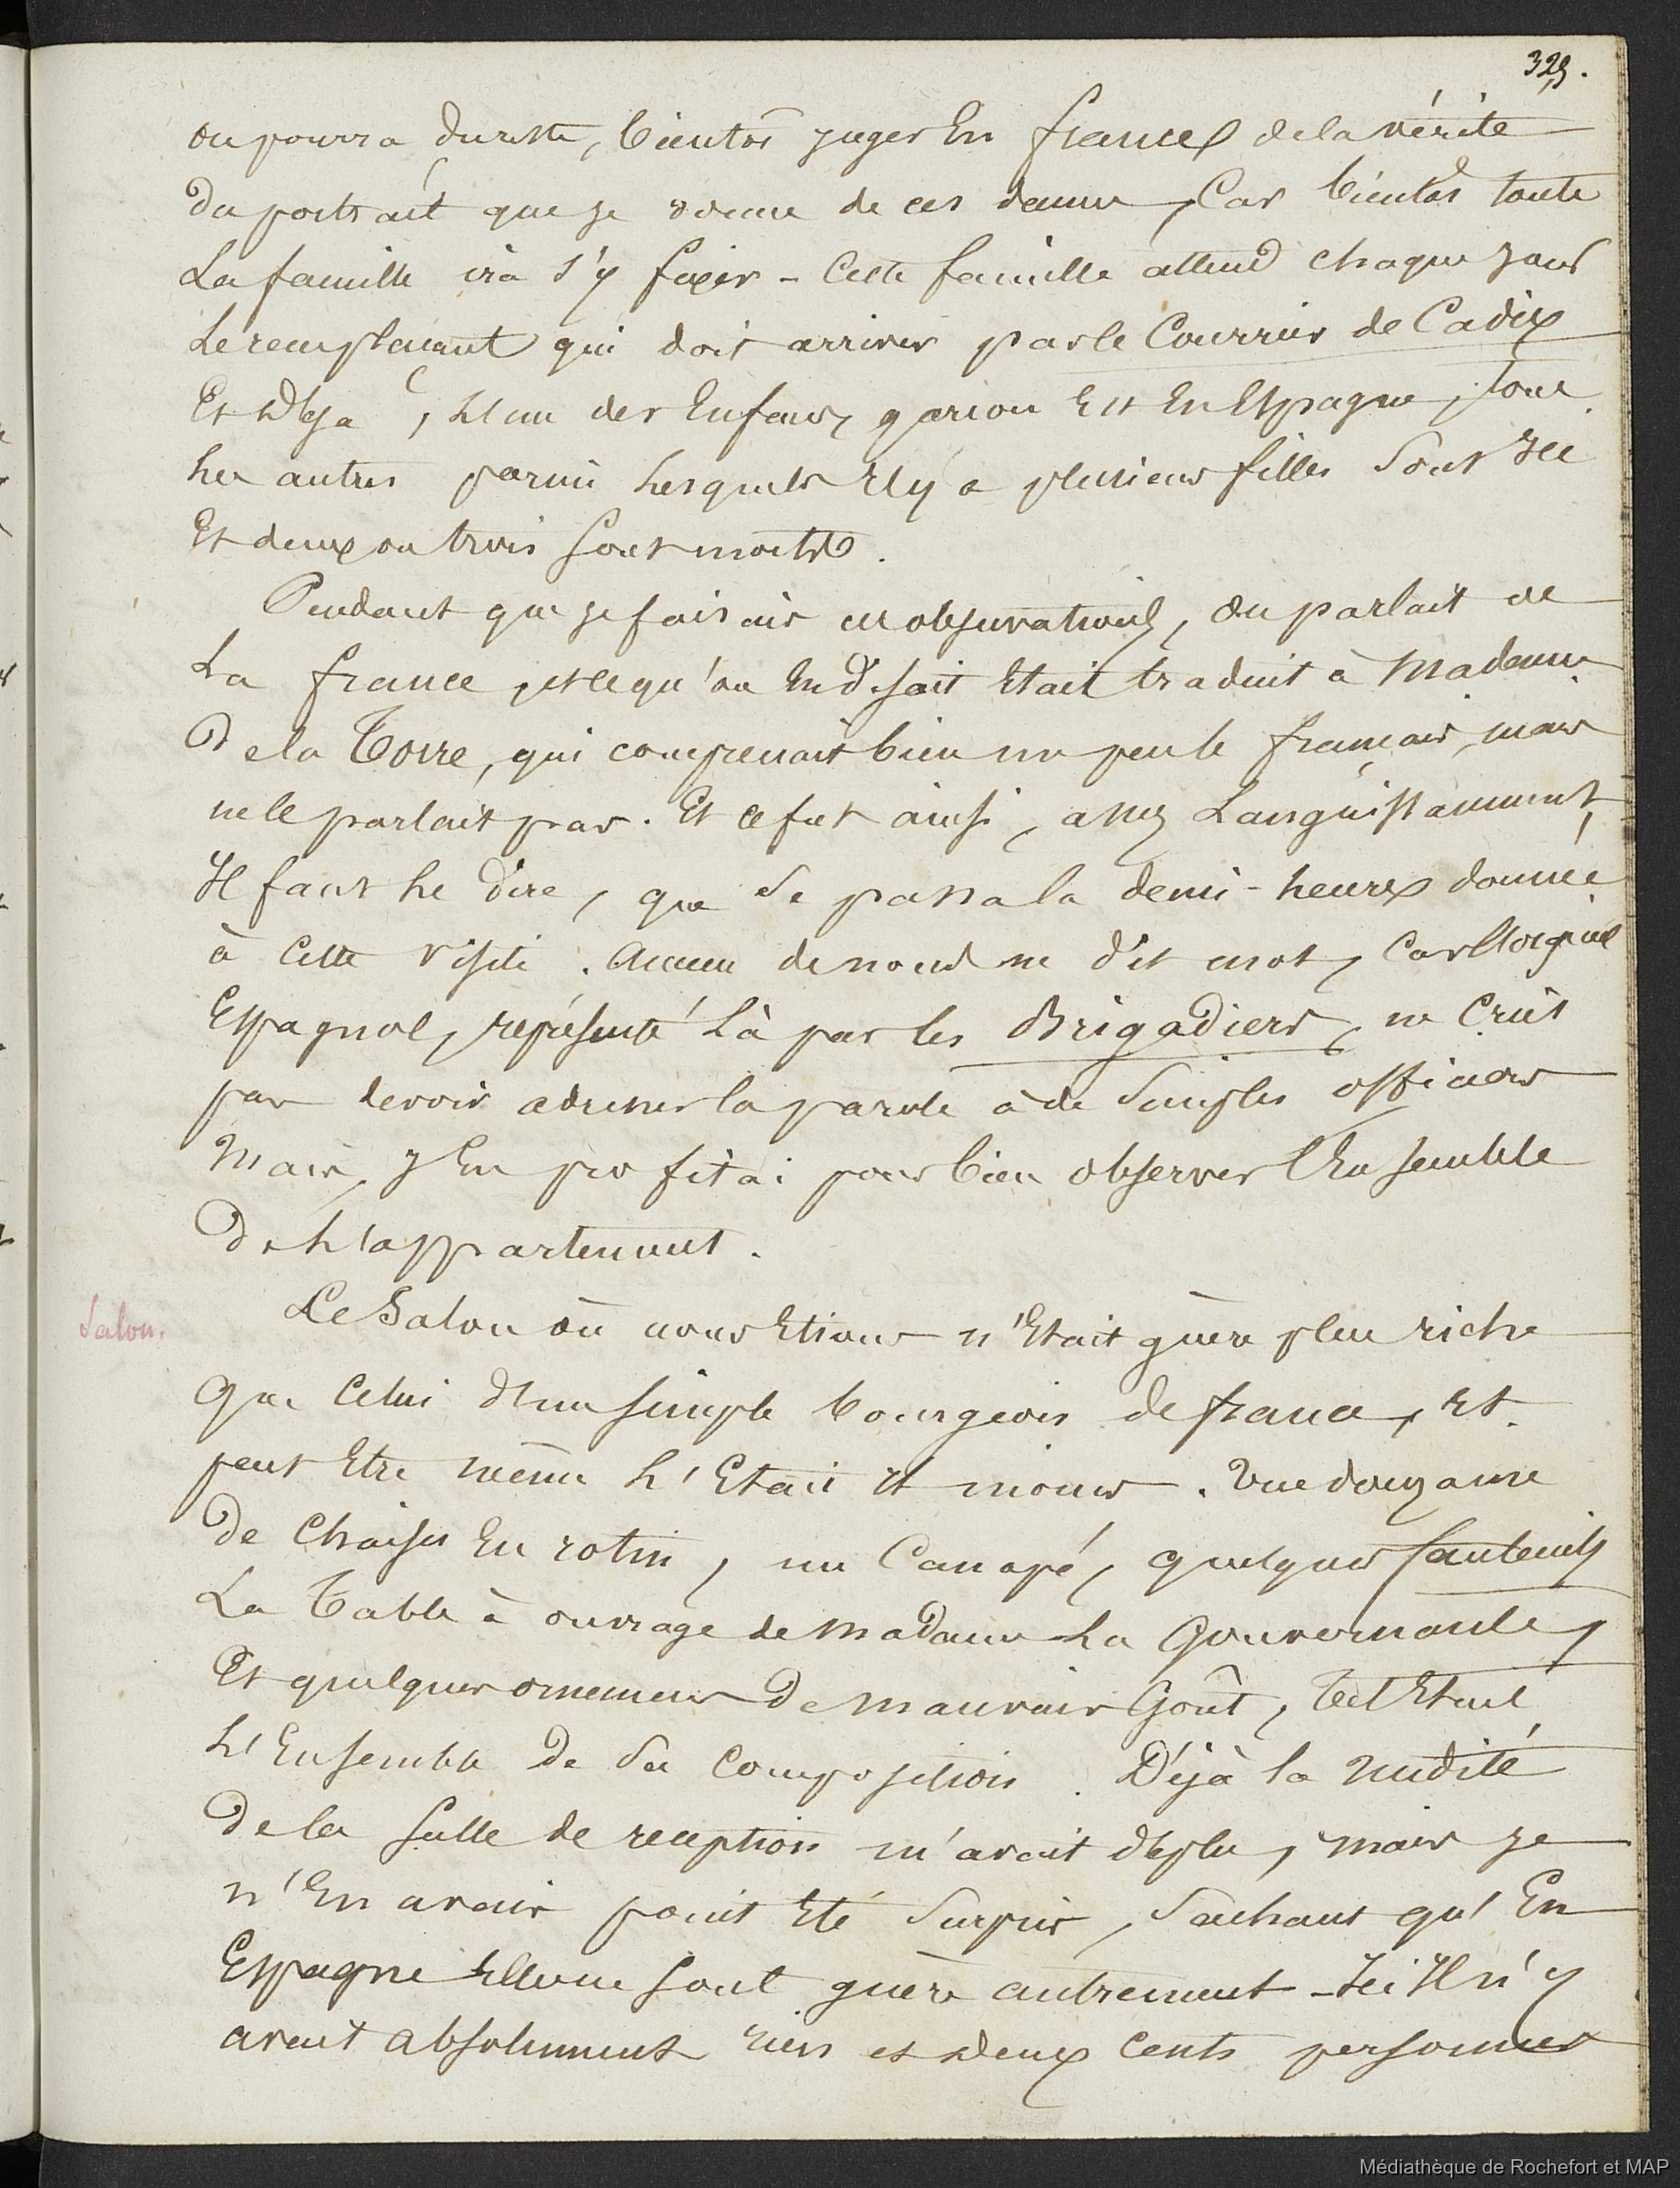 325.
on pourra du reste, bientôt juger En france de la vérité
du portrait que je donne de ces dames, Car bientôt toute
La famille ira s'y fixer - Cette famille attend chaque jour
Le remplaçant qui doit arriver par le Courrier de Cadix
Et déja, L'un des Enfans, garçon Est En Espagne, tous
Les autres parmi Lesquels Il y a plusieurs filles Sont Ici
Et deux ou trois Sont morts.
Pendant que je faisais ces observations, on parlait de
La france, et ce qu'on En disait Etait traduit à Madame
De la Torre, qui comprenait bien un peu le français, mais
ne le parlait pas. Et ce fut ainsi, assez Languissamment,
Il faut Le dire, que Se passa la demi-heure donnée
à Cette visite. Aucun de nous ne dit mot, Car l'orgueil
Espagnol, représenté Là par les Brigadiers, ne Crût
pas devoir adresser la parole à de Simples officiers
Mais, j'En profitai pour bien observer l'Ensemble
De L'appartement.
Salon.
Le Salon où nous Etions n'Etait guère plus riche
Que Celui d'un simple bourgeois de france, Et
peut Etre même L'Etait il moins. Une douzaine
De Chaises En rotin, un Canapé, quelques fauteuils
La Table à ouvrage de Madame La Gouvernante,
Et quelques ornemens De mauvais Goût, Tel Etait
L'Ensemble De Sa Composition. Déjà la nudité
De la Salle de reception m'avait déplu, mais je
n'En avais point Eté Surpris, Sachant qu'En
Espagne Elles ne sont guère autrement - Ici Il n'y
avait absolument rien et deux Cents personnes
Médiathèque de Rochefort et MAP